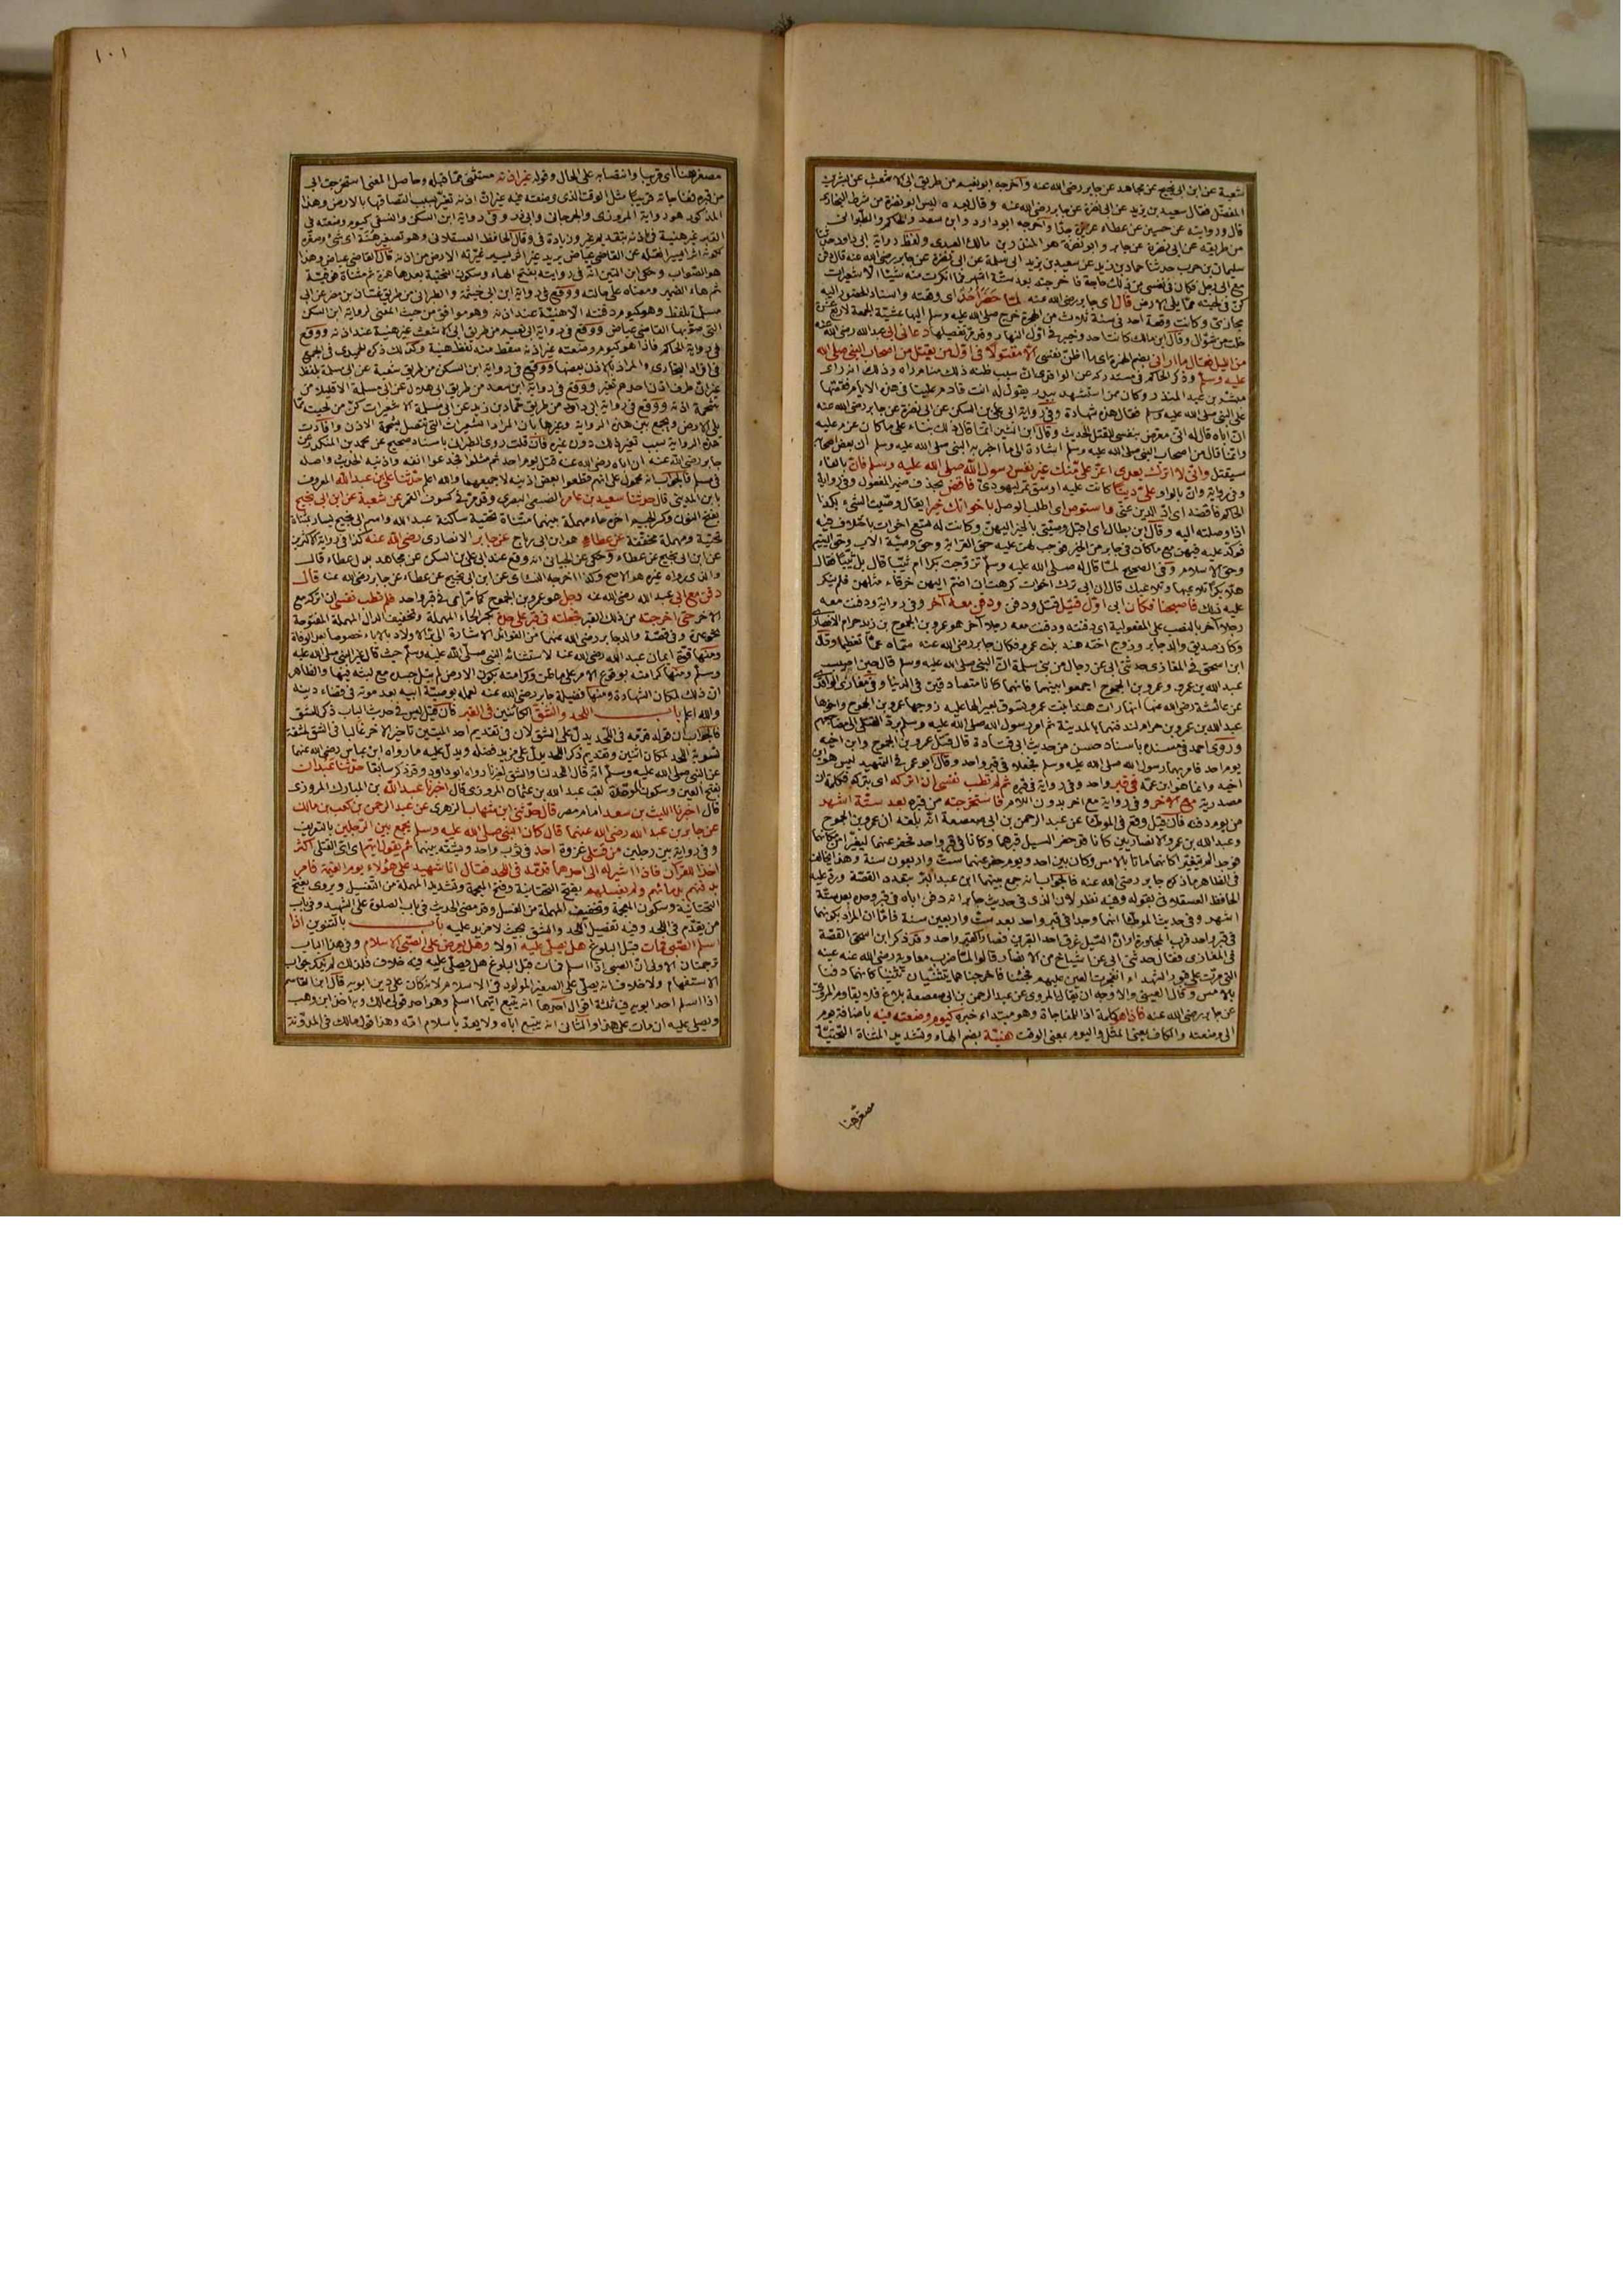 شعبة عن ابن ابى نجيح عن مجاهد عن جابر رضى الله عنه وآخرجه ابو نعيم من طريق ابى الاشعث عن بشر بن
المفضل فقال سعيد بن يزيد عن ابى نضرة عن جابر رضى الله عنه وقال بعده ليس ابو نضرة من شرط البخارى
قال وروايته عن حسين عن عطاء عزيزة جدّا وآخرجه ابو داود وابن سعد والحاكم والطبرانى
من طريقه عن ابى نضرة عن جابر وابو نضرة هو المنذر بن مالك العبدى ولفظ رواية ابى داود حدثنا
سليمان بن حرب حدثنا حماد بن زيد عن سعيد بن يزيد ابى سلمة عن ابى نضرة عن جابر رضى الله عنه قال دفن
مع ابى رجل فكان فى نفسى من ذلك حاجة فاخرجته بعد ستة اشهر فما انكرت منه شيئا الا شعيرات
كنّ فى لحيته ممّا يلى الارض قال اى جابر رضى الله عنه لمّا حضر أحد اى وقعته واسناد الحضور اليه
مجازى وكانت وقعة احد فى سنة ثلاث من الهجرة خرج صلى الله عليه وسلم اليها عشيّة الجمعة لاربع عشرة
خلت من شوّال وقال ابن مالك كانت احد وخيبر فى اوّل النهار وقد مرّ تفصيلها دعانى ابى عبد الله رضى الله عنه
من الليل فقال ما ارانى بضم الهمزة اى ما اظنّ نفسى الا مقتولا فى اوّل من يقتل من اصحاب النبى صلى الله
عليه وسلم وذكر الحاكم فى مستدركه عن الواقدى انّ سبب ظنه ذلك منام رآه وذلك انه رأى
مبشر بن عبد المنذر وكان ممن استشهد ببدر يقول له انت قادم علينا فى هذه الايام فقصّها
على النبى صلى الله عليه وسلم فقال هذه شهادة وفى رواية ابى على بن السكن عن ابى نضرة عن جابر رضى الله عنه
انّ اباه قال له انى معرّض بنفسى للقتل الحديث وقال ابن التين انّما قال ذلك بناء على ما كان عزم عليه
وانّما قال من اصحاب النبى صلى الله عليه وسلم اشارة الى ما اخبر به النبى صلى الله عليه وسلم ان بعض اصحابه
سيقتل وانّى لا اترك بعدى اعزّ علىّ منك غير نفس رسول الله صلى الله عليه وسلم فان بالفاء
وفى رواية وانّ بالواو علىّ دينًا كانت عليه اوسق تمر ليهودىّ فاقض بحذف ضمير المفعول وفى رواية
الحاكم فاقضه اى ادّ الدين عنى واستوص اى اطلب الوصل باخواتك خيرا يقال وصّيت الشىء بكذا
اذا وصلته اليه وقال ابن بطال اى اقبل وصيّتى بالخير اليهنّ وكانت له تسع اخوات باختلاف فيه
فوكّد عليه فيهن مع ما كان فى جابر من الخير فوجب لهن عليه حق القرابة وحق وصيّة الاب وحق اليتيم
وحق الاسلام وفى الصحيح لمّا قال له صلى الله عليه وسلم تزوجت بكرا ام ثيّبا قال بل ثيّبا فقال
هلّا بكرًا تلاعبها وتلاعبك قال ان ابى ترك اخوات كرهت ان اضم اليهن خرقاء مثلهن فلم ينكر
عليه ذلك فاصبحنا فكان ابى اوّل قتيل قتل ودفن ودفن معه آخر وفى رواية ودفنت معه
رجلا آخر بالنصب على المفعولية اى دفنته ودفنت معه رجلا آخر هو عمرو بن الجموح بن زيد بن حرام الانصارى
وكان صديق والد جابر وزوج اخته هند بنت عمرو فكان جابر رضى الله عنه سمّاه عمّا تعظيما وقال
ابن اسحق فى المغازى حدثنى ابى عن رجال من بنى سلمة انّ النبى صلى الله عليه وسلم قال حين اصيب
عبد الله بن عمرو وعمرو بن الجموح اجمعوا بينهما فانهما كانا متصادقين فى الدنيا وفى مغازى الواقدى
عن عائشة رضى الله عنها انها رات هندا بنت عمرو تسوق بعيرا لها عليه زوجها عمرو بن الجموح واخوها
عبد الله بن عمرو بن حرام لتدفنهما بالمدينة ثم امر رسول الله صلى الله عليه وسلم بردّ القتلى الى مضاجعهم
وروى احمد فى مسنده باسناد حسن من حديث ابى قتادة قال قتل عمرو بن الجموح وابن اخيه
يوم احد فامر بهما رسول الله صلى الله عليه وسلم فجعلا فى قبر واحد وقال ابو عمر فى التمهيد ليس هو ابن
اخيه وانما هو ابن عمّه فى قبر واحد وفى رواية فى قبره ثم لم تطب نفسى ان اتركه اى بتركه فكلمة ان
مصدرية مع الآخر وفى رواية مع آخر بدون اللام فاستخرجته من قبره بعد ستّة اشهر
من يوم دفنه فان قيل وقع فى الموطّأ عن عبد الرحمن بن ابى صعصعة انّه بلغه ان عمرو بن الجموح
وعبد الله بن عمرو الانصاريين كانا قد حفر السيل قبرهما وكانا فى قبر واحد فحفر عنهما ليغيّرا من مكانهما
فوجد لم يتغيّرا كانهما ماتا بالامس وكان بين احد ويوم حفر عنهما ستّ واربعون سنة وهذا يخالف
فى الظاهر ما ذكره جابر رضى الله عنه فالجواب انه جمع بينهما ابن عبد البرّ بتعدد القصّة وردّ عليه
الحافظ العسقلانى بقوله وفيه نظر لان الذى فى حديث جابر انه دفن اباه فى قبر وحده بعد ستّة
اشهر وفى حديث الموطأ انهما وجدا فى قبر واحد بعد ستّ واربعين سنة فامّا ان المراد بكونهما
فى قبر واحد قرب المجاورة او انّ السيل خرق احد القبرين فصار كقبر واحد وقد ذكر ابن اسحق القصّة
فى المغازى فقال حدثنى ابى عن اشياخ من الانصار قالوا لمّا ضرب معاوية رضى الله عنه عينه
التى مرّت على قبور الشهداء انفجرت العين عليهم فجئنا فاخرجناهما يتثنيان تثنيا كانهما دفنا
بالامس وقال العينى والاوجه ان يقال المروى عن عبد الرحمن بن ابى صعصعة بلاغ فلا يقاوم المروىّ
عن جابر رضى الله عنه فاذا هو كلمة اذا للمفاجاة وهو مبتداء خبره كيوم وضعته فيه باضافة يوم
الى وضعته والكاف بمعنى المثل واليوم بمعنى الوقت هنيّة بضم الهاء وتشديد المثناة التحتيّة
مصغّرهنا
١٠١
مصغر هنا اى قريبا وانتصابه على الحال وقوله غير اذنه مستثنى ممّا قبله وحاصل المعنى استخرجت ابى
من قبره ففاجأته قريبًا مثل الوقت الذى وضعته فيه غير انّ اذنه تغيّر بسبب التصاقها بالارض وهذا
المذكور هو رواية المروزى والجرجانى وابى ذر وفى رواية ابن السكن والنسفى كيوم وضعته فى
القبر غير هنية فى اذنه بتقديم غير وزيادة فى وقال الحافظ العسقلانى وهو تصغير هنة اى شىء وصغّره
لكونه اثرا يسيرا نقله عن القاضى عياض يريد غير اثر يسير غيّرته الارض من اذنه قال القاضى عياض وهذا
هو الصّواب وحكى ابن التين انّه فى روايته بفتح الهاء وسكون التحتية بعدها همزة ثم مثناة فوقيّة
ثم هاء الضمير ومعناه على حالته ووقع فى رواية ابن ابى خيثمة والطبرانى من طريق غسّان بن مضر عن ابى
مسلمة بلفظ وهو كيوم دفنته الا هنيّة عند اذنه وهو موافق من حيث المعنى لرواية ابن السكن
التى صوّبها القاضى عياض ووقع فى رواية ابى نعيم من طريق ابى الاشعث غير هنية عند اذنه ووقع
فى رواية الحاكم فاذا هو كيوم وضعته غير اذنه سقط منه لفظ هنية وكذلك ذكره الحميدى فى الجمع
فى افراد البخارى والمراد بالاذن بعضها ووقع فى رواية ابن السكن من طريق شعبة عن ابى سلمة بلفظ
غير انّ طرف اذن احدهم تغيّر ووقع فى رواية ابن سعد من طريق ابى هلال عن ابى مسلمة الا قليلا من
شحمة اذنه ووقع فى رواية ابى داود من طريق حماد بن زيد عن ابى مسلمة الا شعيرات كنّ من لحيته ممّا
يلى الارض ويجمع بين هذه الرواية وغيرها بان المراد الشعيرات التى تتصل بشحمة الاذن وافادت
هذه الرواية سبب تغير ذلك دون غيره فان قلت روى الطبرانى باسناد صحيح عن محمد بن المنكدر عن
جابر رضى الله عنه ان اباه رضى الله عنه قتل يوم احد ثم مثلوا به فجدعوا انفه واذنيه الحديث واصله
فى مسلم فالجواب انه محمول على انهم قطعوا بعض اذنيه لا جميعهما والله اعلم حدّثنا على بن عبد الله المعروف
بابن المدينى قال حدثنا سعيد بن عامر الضبعى البصرى وقد مرّ فى كسوف القمر عن شعبة عن ابن ابى نجيح
بفتح النون وكسر الجيم آخره حاء مهملة بينهما مثنّاة تحتية ساكنة عبد الله واسم ابى نجيح يسار بمثنّاة
تحتيّة ومهملة مخفّفة عن عطاء هو ابن ابى رباح عن جابر الانصارى رضى الله عنه كذا فى رواية الاكثرين
عن ابن ابى نجيح عن عطاء وحكى عن الجيانى انه وقع عند ابى على بن السكن عن مجاهد بدل عطاء قال
والذى رواه غيره هو الاصح وكذا اخرجه النسائى عن ابن ابى نجيح عن عطاء عن جابر رضى الله عنه قال
دفن مع ابى عبد الله رضى الله عنه رجل هو عمرو بن الجموح كما مرّ اى فى قبر واحد فلم تطب نفسى ان اتركه مع
الاخر حتى اخرجته من ذلك القبر فجعلته فى قبر على حدة بكسر الحاء المهملة وتخفيف الدال المهملة المفتوحة
نحو عدة وفى قصّة والد جابر رضى الله عنهما من الفوائد الاشارة الى برّ الاولاد بالاباء خصوصا بعد الوفاة
ومنها قوّة ايمان عبد الله رضى الله عنه لاستثنائه النبى صلّى الله عليه وسلم حيث قال غير النبى صلى الله عليه
وسلم ومنها كرامته بوقوع الامر على ما ظنّ وكرامته بكون الارض لم تبل جسده مع لبثه فيها والظاهر
ان ذلك لمكان الشهادة ومنها فضيلة جابر رضى الله عنه لعمله بوصيّة ابيه بعد موته فى قضاء دينه
والله اعلم باب اللحد والشق الكائنين فى القبر فان قيل ليس فى حديث الباب ذكر للشق
فالجواب ان قوله قدّمه فى اللّحد يدلّ على الشق لان فى تقديم احد الميتين تاخير الاخر غالبا فى الشق لمشقة
تسوية اللحد لمكان اثنين وتقديم ذكر اللحد يدلّ على مزيد فضله ويدلّ عليه ما رواه ابن عباس رضى الله عنهما
عن النبى صلى الله عليه وسلم انّه قال اللحد لنا والشق لغيرنا رواه ابو داود وقد ذكر سابقا حدّثنا عبدان
بفتح العين وسكون الموحّدة لقب عبد الله بن عثمان المروزى قال اخبرنا عبد الله بن المبارك المروزى
قال اخبرنا الليث بن سعد امام مصر قال حدّثنى ابن شهاب الزهرى عن عبد الرحمن بن كعب بن مالك
عن جابر بن عبد الله رضى الله عنهما قال كان النبى صلى الله عليه وسلم يجمع بين الرّجلين بالتعريف
وفى رواية بين رجلين من قتلى غزوة احد فى ثوب واحد ويشقه بينهما ثم يقول ايّهم اى اىّ القتلى اكثر
اخذا للقرآن فاذا اشير له الى احدهما قدّمه فى اللحد فقال انا شهيد على هؤلاء يوم القيمة فامر
بدفنهم بدمائهم ولم يغسلهم بفتح التحتانيّة وفتح المعجمة وتشديد المهملة من التّغسيل ويروى بفتح
التحتانيّة وسكون المعجمة وتخفيف المهملة من الغسل وقد مضى الحديث فى باب الصلوة على الشهيد وفى باب
من يقدّم فى اللحد وفيه تفصيل اللحد والشق بحيث لا مزيد عليه باب بالتنوين اذا
اسلم الصّبى فمات قبل البلوغ هل يصلّى عليه اولا وهل يعرض على الصّبى الاسلام وفى هذا الباب
ترجمتان الاولى انّ الصبى اذا اسلم فمات قبل البلوغ هل يصلّى عليه فيه خلاف فلذلك لم يذكر جواب
الاستفهام ولا خلاف انه يصلّى على الصغير المولود فى الاسلام لانه كان على دين ابويه قال ابن القاسم
اذا اسلم احد ابويه فيه ثلثة اقوال احدها انه يتبع ايّهما اسلم وهو احد قولى مالك وبه اخذ ابن وهب
ويصلى عليه ان مات على هذا والثانى انه يتبع اباه ولا يعدّ باسلام امّه وهذا قول مالك فى المدوّنة